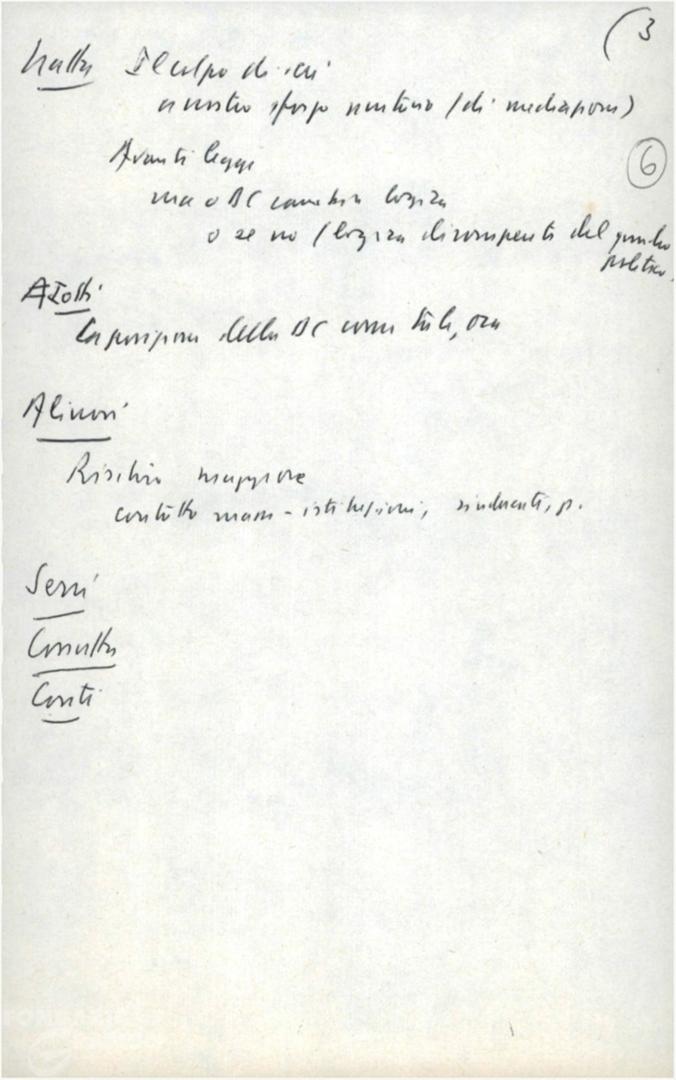 (3
Natta Il colpo di ieri
a nostro sforzo unitario (di mediazione)
6
Avanti legge
ma o DC cambia logica
o se no (logica dirompente del quadro
politico.
Iotti
La posizione della DC come tale, ora
Alinovi
Rischio maggiore
contatto massa-istituzioni, sindacati, p.
Serri
Cossutta
Conti